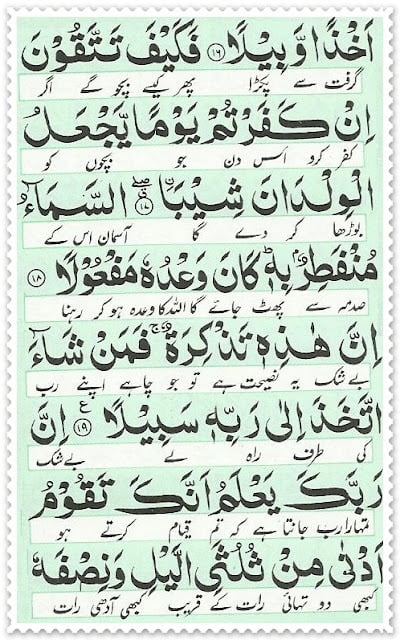 اَخْذًا وَّبِيْلًا ﴿۱۶﴾ فَكَيْفَ تَتَّقُوْنَ
گرفت سے پکڑا پھر کیسے بچو گے اگر
اِنْ كَفَرْتُمْ يَوْمًا يَّجْعَلُ
کفر کرو اس دن جو بچوں کو
الْوِلْدَانَ شِيْبَا ۖ ﴿۱۷﴾ السَّمَآءُ
بوڑھا کر دے گا آسمان اس کے
مُنْفَطِرٌۢ بِهٖ ؕ كَانَ وَعْدُهٗ مَفْعُوْلًا ﴿۱۸﴾
صدمہ سے پھٹ جائے گا اللہ کا وعدہ ہو کر رہنا
اِنَّ هٰذِهٖ تَذْكِرَةٌ ۚ فَمَنْ شَآءَ
بے شک یہ نصیحت ہے تو جو چاہے اپنے رب
اتَّخَذَ اِلٰى رَبِّهٖ سَبِيْلًا ﴿۱۹﴾ ع اِنَّ
کی طرف راہ لے بے شک
رَبَّكَ يَعْلَمُ اَنَّكَ تَقُوْمُ
تمہارا رب جانتا ہے کہ تم قیام کرتے ہو
اَدْنٰى مِنْ ثُلُثَيِ الَّيْلِ وَنِصْفَهٗ
کبھی دو تہائی رات کے قریب کبھی آدھی رات